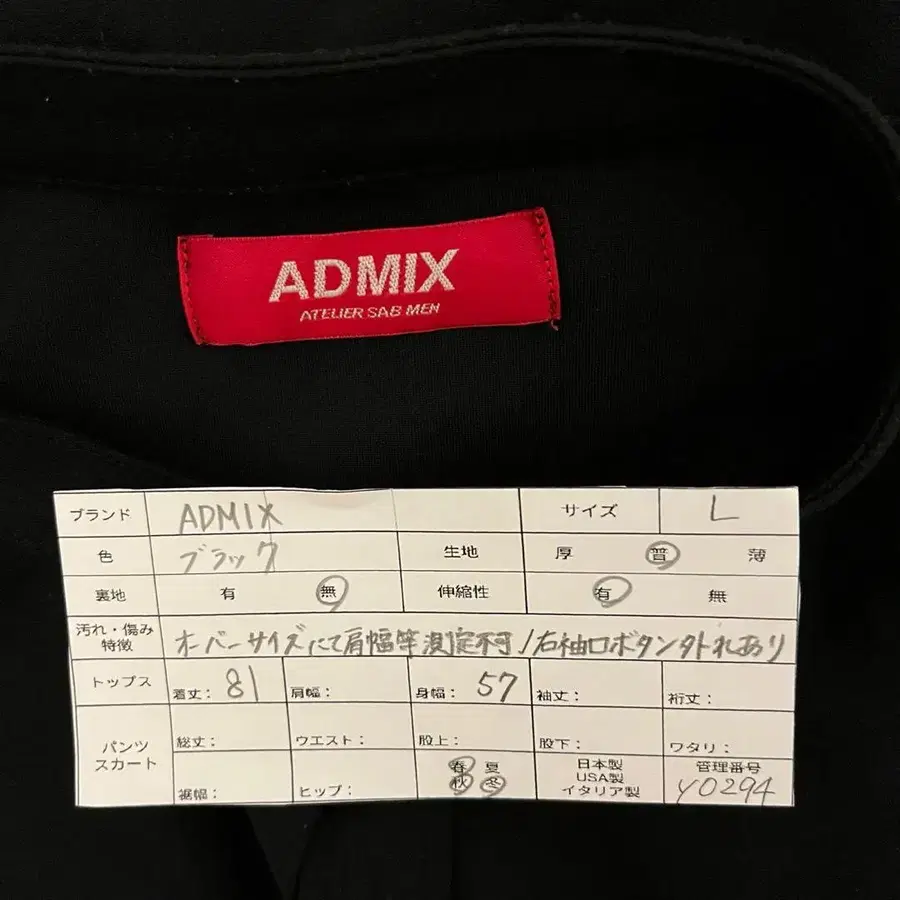 ADMIX
ATELIER SAB MEN
ブランド ADMIX サイズ L
色 ブラック 生地 厚 普 薄
裏地 有 無 伸縮性 有 無
汚れ・傷み
特徴 オーバーサイズにて肩幅等測定不可/右袖口ボタン外れあり
トップス 着丈: 81 肩幅: 身幅: 57 袖丈: 裄丈:
パンツ
スカート
総丈: ウエスト: 股上: 股下: ワタリ:
裾幅: ヒップ: 春 夏
秋 冬
日本製
USA製
イタリア製
管理番号
Y0294